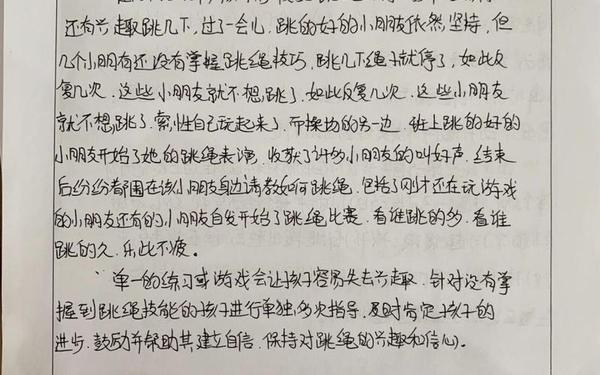 还有兴趣跳几下,过了一会儿,跳的好的小朋友依然坚持,但
几个小朋有还没有掌握跳绳技巧,跳几下绳子就停了,如此反
复几次,这些小朋友就不想跳了,如此反复几次,这些小朋友
就不想跳了,索性自己玩起来了。而操场的另一边,班上跳的好的
小朋友开始了她的跳绳表演,收获了许多小朋友的叫好声,结束
后纷纷都围在该小朋友身边请教如何跳绳,包括了刚才还在玩游戏
的小朋友还有的小朋友自发开始了跳绳比赛,看谁跳的多,看谁
跳的久,乐此不疲。
单一的练习或游戏会让孩子容易失去兴趣,针对没有掌
握到跳绳技能的孩子进行单独多次指导,及时肯定孩子的
进步,鼓励并帮助其建立自信,保持对跳绳的兴趣和信心。